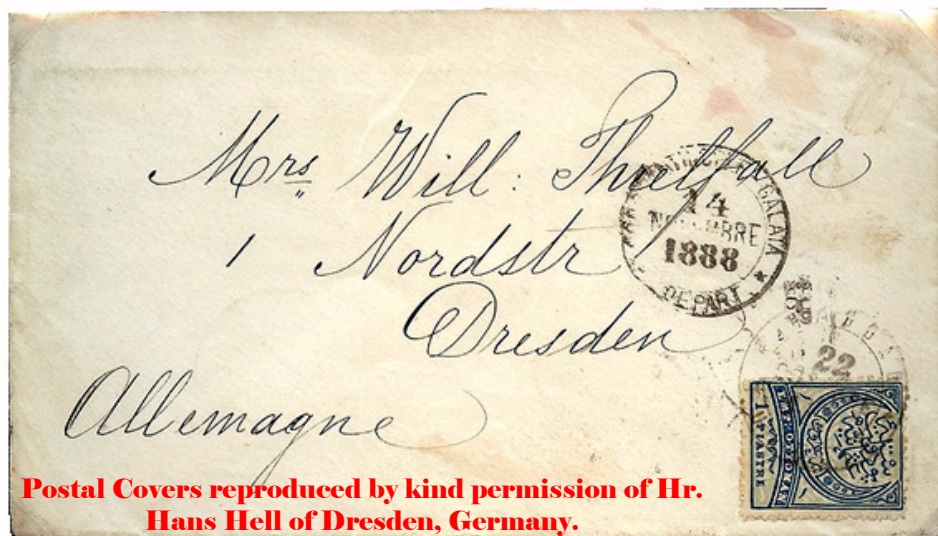 Mrs Will: Threlfall
1 Nordstr
Dresden
Allemagne
GALATA
14
NOVEMBRE
1888
* DEPART *
22
1 PIASTRE
EMP. OTTOMAN
Postal Covers reproduced by kind permission of Hr.
Hans Hell of Dresden, Germany.